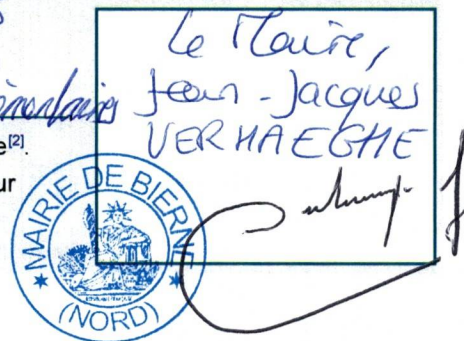 Le Maire,
Jean-Jacques
VERHAEGHE
e[2].
ur
MAIRIE DE BIERNE
(NORD)